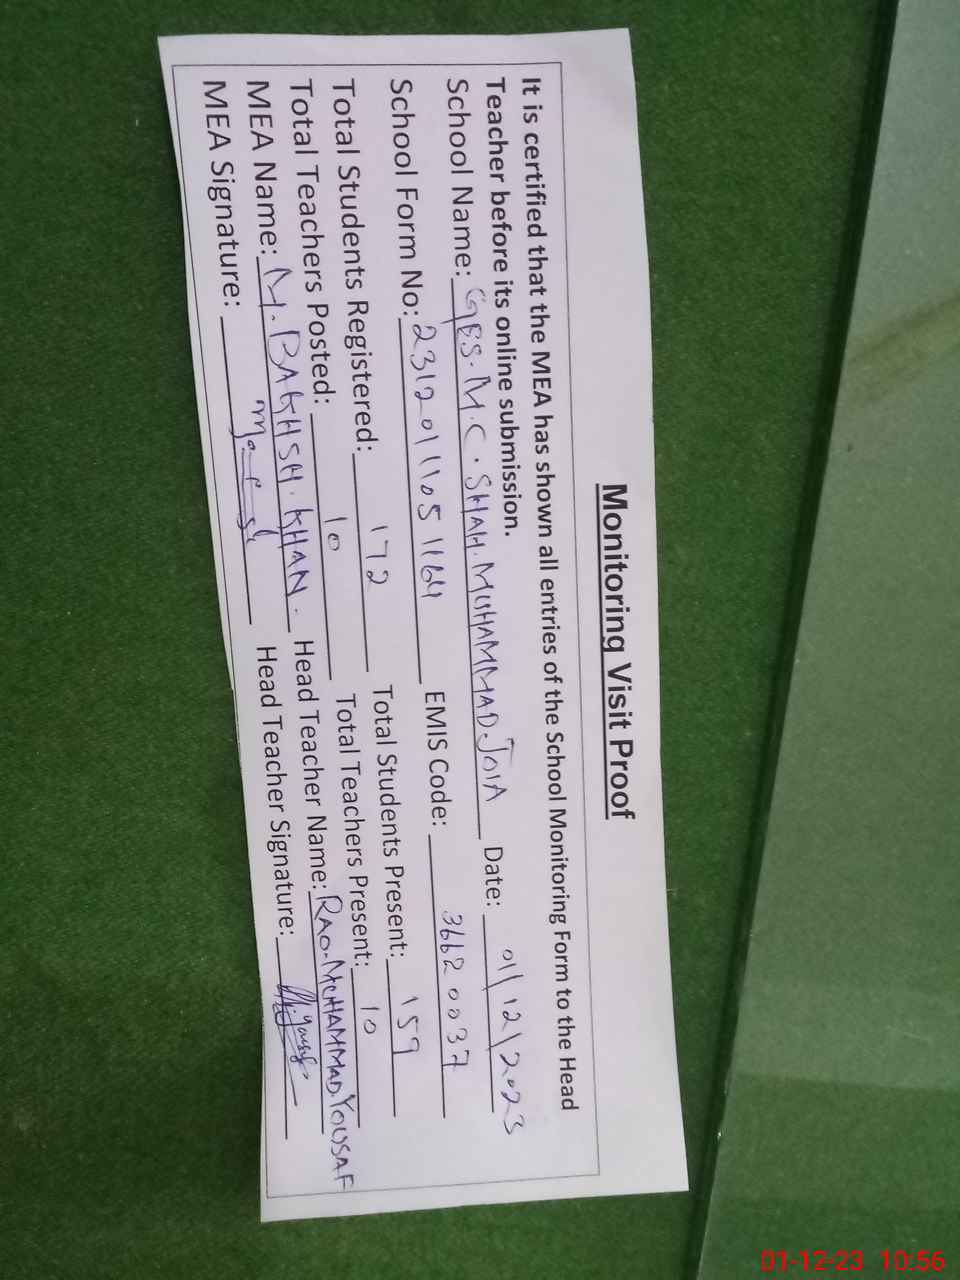 Monitoring Visit Proof
It is certified that the MEA has shown all entries of the School Monitoring Form to the Head
Teacher before its online submission.
School Name: GES. M.C. SHAH. MUHAMMAD. JOIA Date: 01/12/2023
School Form No: 2312011051164 EMIS Code: 36620037
Total Students Registered: 172 Total Students Present: 159
Total Teachers Posted: 10 Total Teachers Present: 10
MEA Name: M. BAKHSH. KHAN. Head Teacher Name: RAO. MUHAMMAD. YOUSAF
MEA Signature: Head Teacher Signature: M. Yousaf
01-12-23 10:56